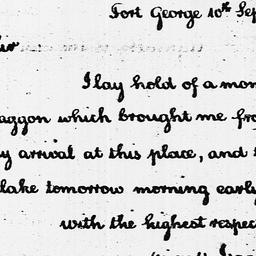 Fort George 10th Sep
ir
I lay hold of a mom
aggon which brought me fro
y arrival at this place, and t
lake tomorrow morning early
with the highest respec